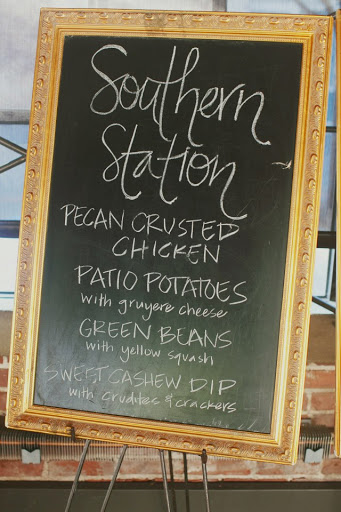 Southern
Station
PECAN CRUSTED
CHICKEN
PATIO POTATOES
with gruyere cheese
GREEN BEANS
with yellow squash
SWEET CASHEW DIP
with crudites & crackers